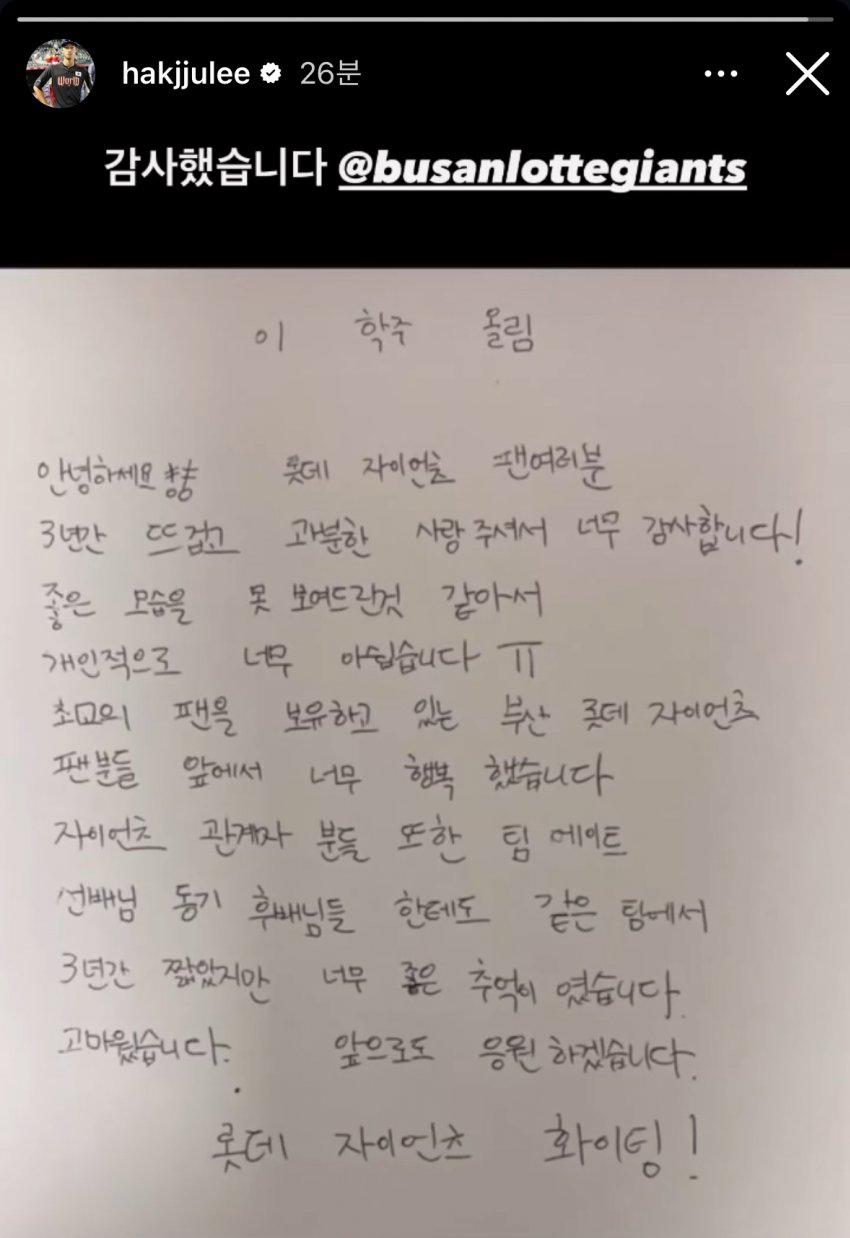 hakjjulee 26분
감사했습니다 @busanlottegiants
이 학주 올림
안녕하세요 롯데 자이언츠 팬여러분
3년간 뜨겁고 과분한 사랑 주셔서 너무 감사합니다!
좋은 모습을 못 보여드린것 같아서
개인적으로 너무 아쉽습니다 ㅠ
초고의 팬을 보유하고 있는 부산 롯데 자이언츠
팬분들 앞에서 너무 행복 했습니다
자이언츠 관계자 분들 또한 팀 메이트
선배님 동기 후배님들 한테도 같은 팀에서
3년간 짧았지만 너무 좋은 추억이 였습니다.
고마웠습니다. 앞으로도 응원 하겠습니다.
롯데 자이언츠 화이팅!